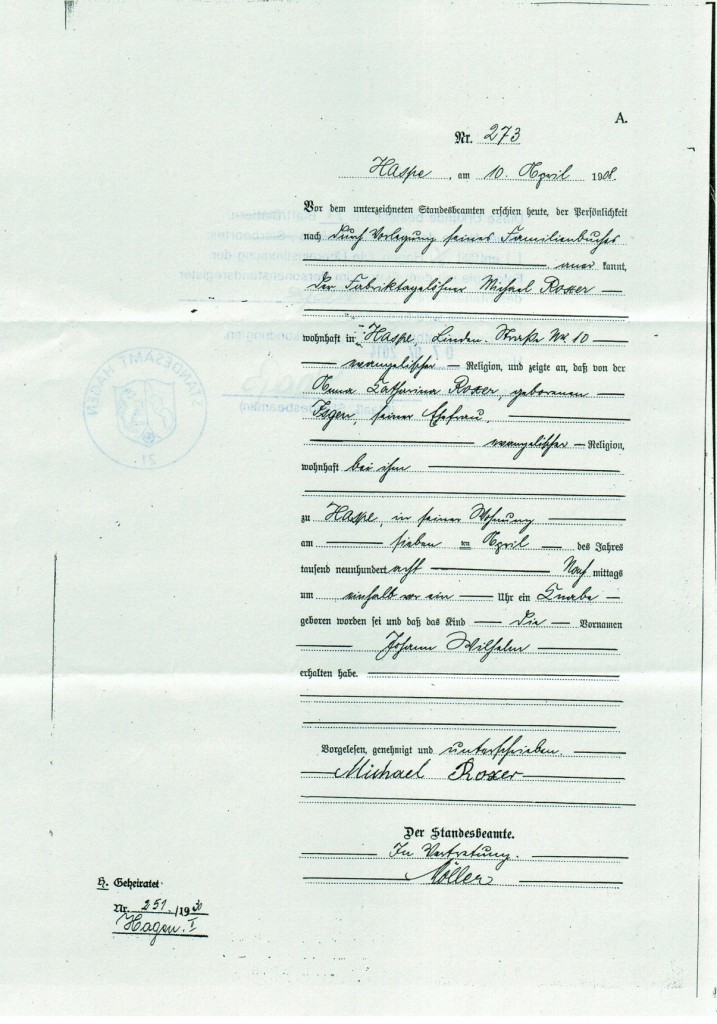 A.
Nr. 273
Haspe, am 10. April 1908.
Vor dem unterzeichneten Standesbeamten erschien heute, der Persönlichkeit
nach durch Vorlegung seines Familienbuches
aner kannt,
der Fabriktagelöhner Michael Roxer
wohnhaft in Haspe, Linden-Straße Nr. 10
evangelischer Religion, und zeigte an, daß von der
Anna Catharina Roxer, geborenen
seiner Ehefrau,
evangelischer Religion,
wohnhaft bei ihm
zu Haspe, in seiner Wohnung
am sieben ten April des Jahres
tausend neunhundert acht Nach mittags
um einhalb vor ein Uhr ein Knabe
geboren worden sei und daß das Kind die Vornamen
Johann Wilhelm
erhalten habe.
Vorgelesen, genehmigt und unterschrieben.
Michael Roxer
Der Standesbeamte.
In Vertretung.
Möller
H. Geheiratet
Nr. 251/1930
Hagen. I
STANDESAMT HAGEN
21